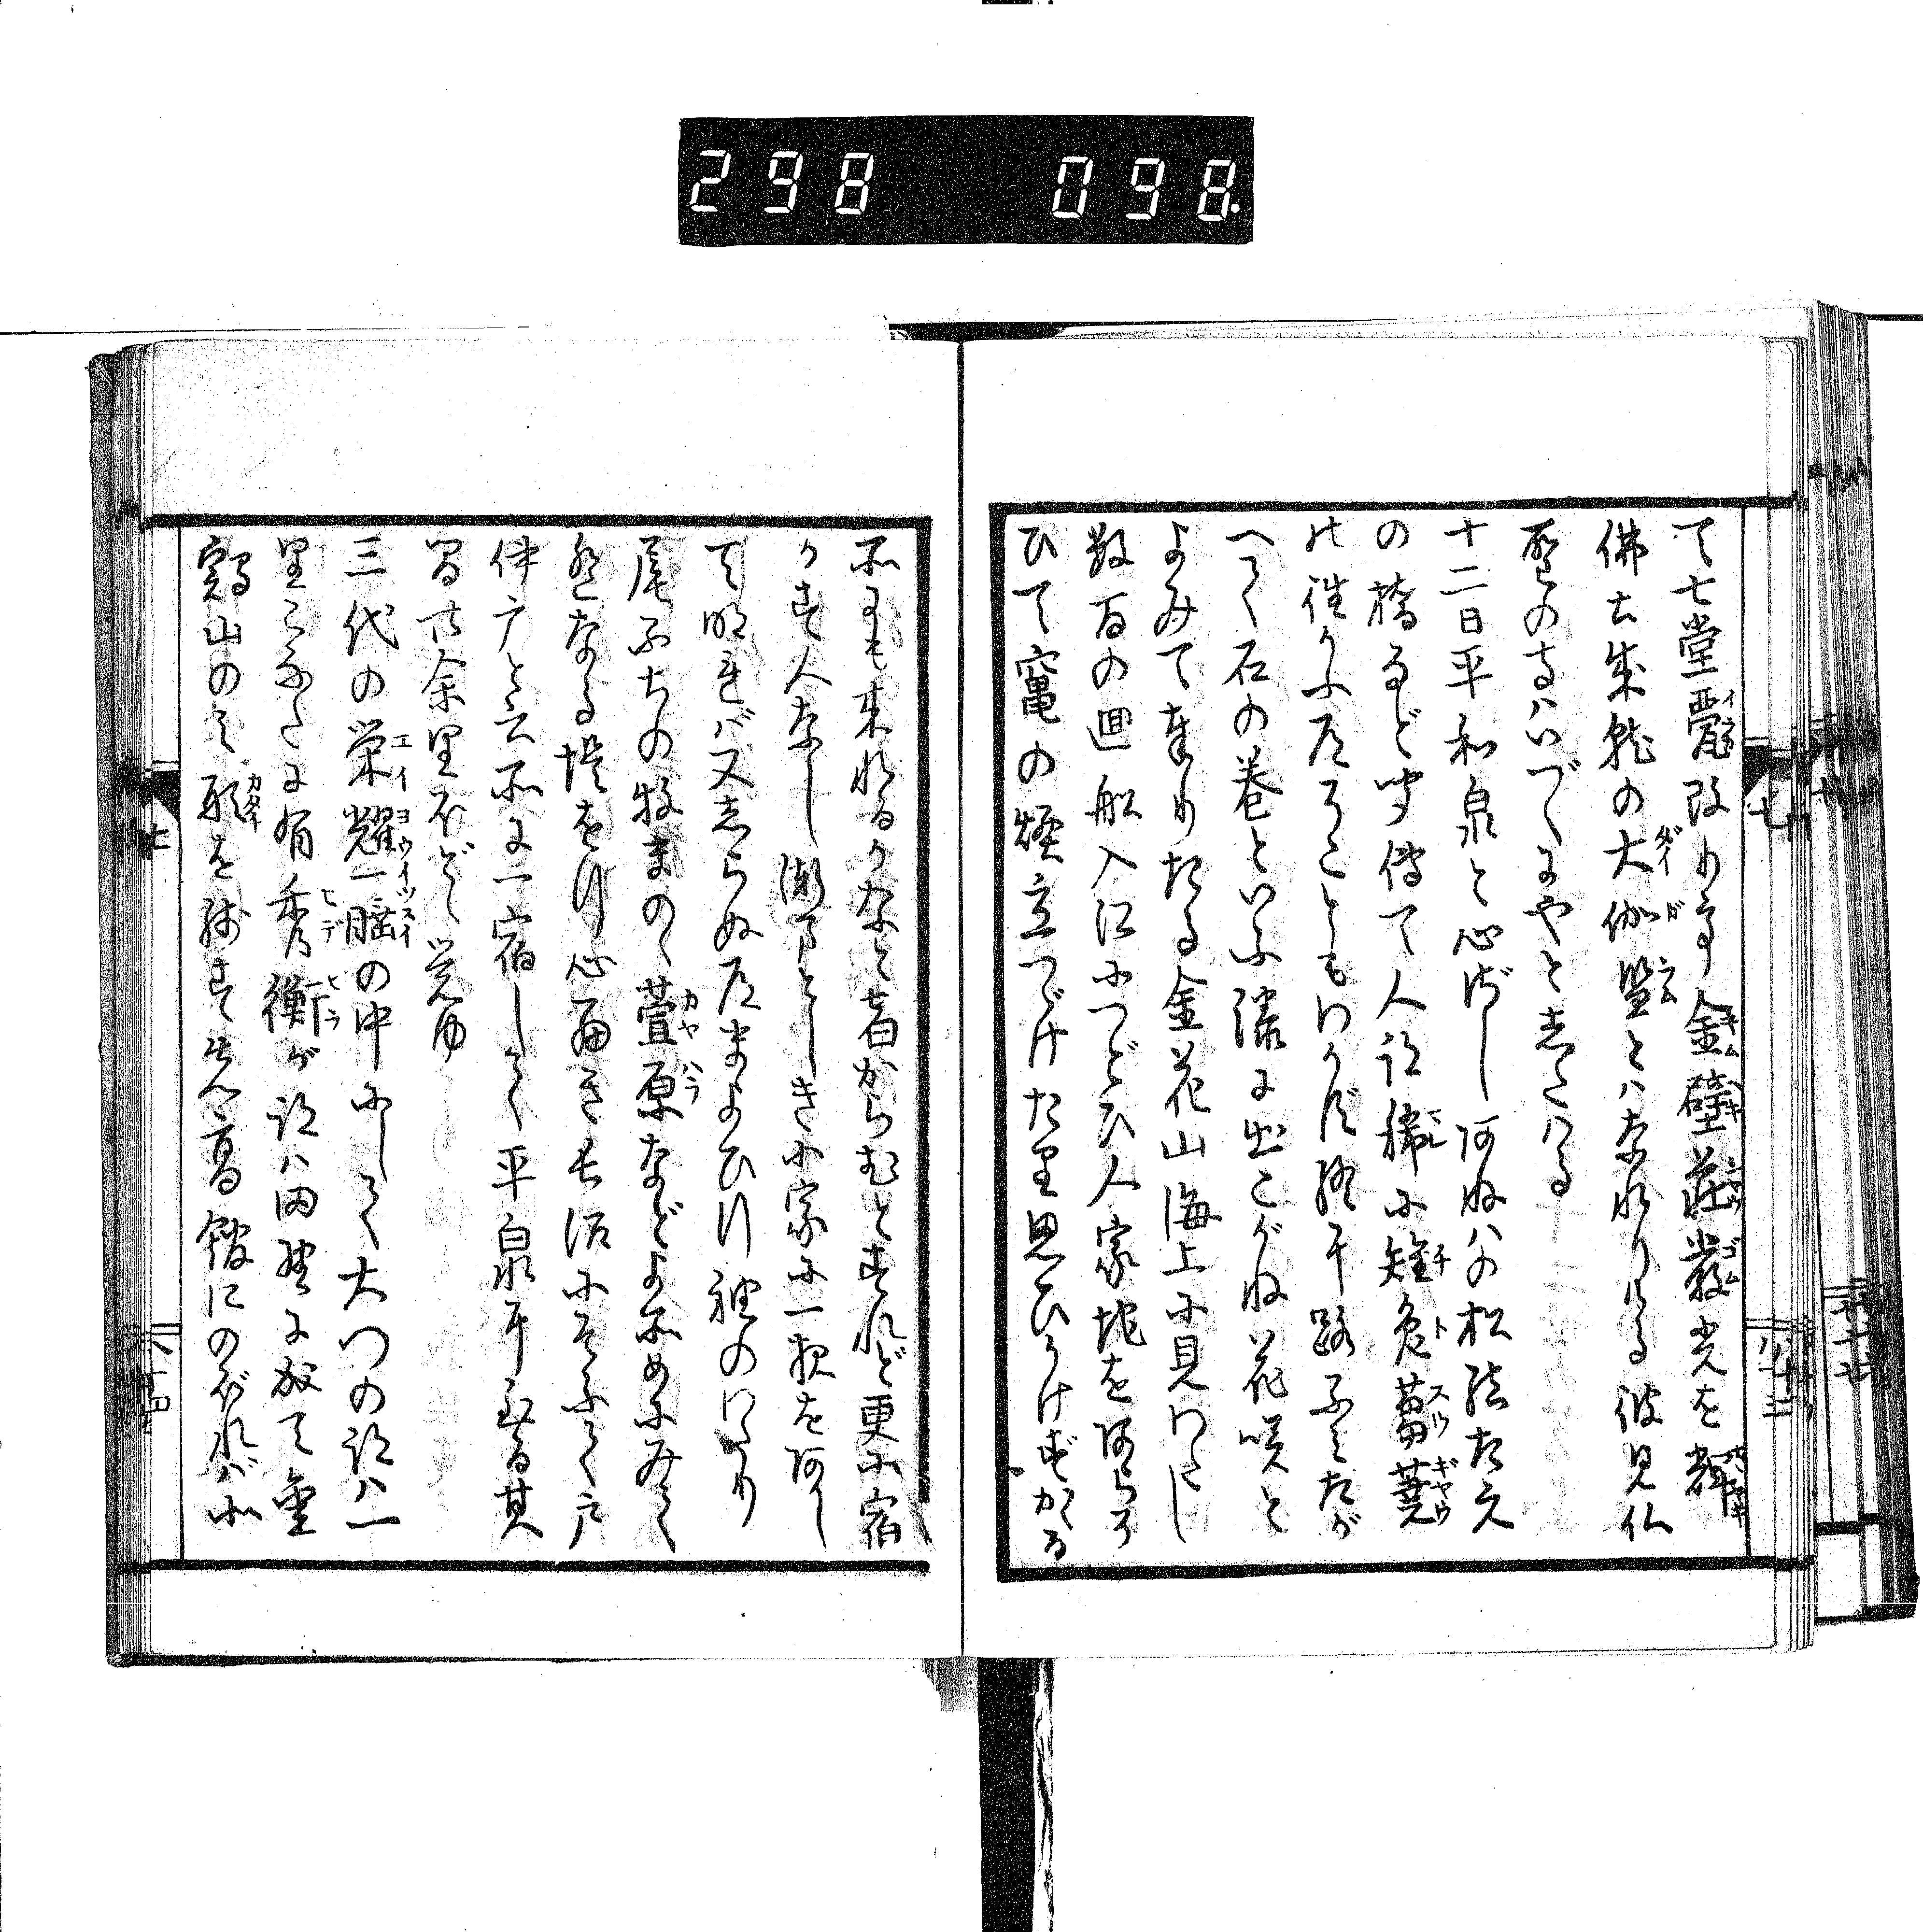 298 098.
て七堂甍改りて金壁荘厳光を輝
佛土成就の大伽藍とはなれりける彼見仏
聖の寺はいづくにやとしたはる
十二日平和泉と心ざしあねはの松緒だえ
の橋など聞傳て人跡稀に雉兎蒭蕘
の往かふ道そこともわかず終に路ふみたが
へて石の巻といふ湊に出こがね花咲と
よみて奉りたる金花山海上に見わたし
数百の廻船入江につどひ人家地をあらそ
ひて竈の煙立つゞけたり思ひかけずかゝる
所にも来れるかなと宿からむとすれど更に宿
かす人なし漸まどしき小家に一夜をあかし
て明れば又しらぬ道まよひ行袖のわたり
尾ぶちの牧まのゝ萱原などよそめにみて
遥なる堤を行心細き長沼にそふて戸
伊广と云所に一宿して平泉に至る其
間廿余里ほどゝ覚ゆ
三代の栄耀一睡の中にして大門の跡は一
里こなたに有秀衡が跡は田野に成て金
鶏山のみ形を残す先高舘にのぼれば北